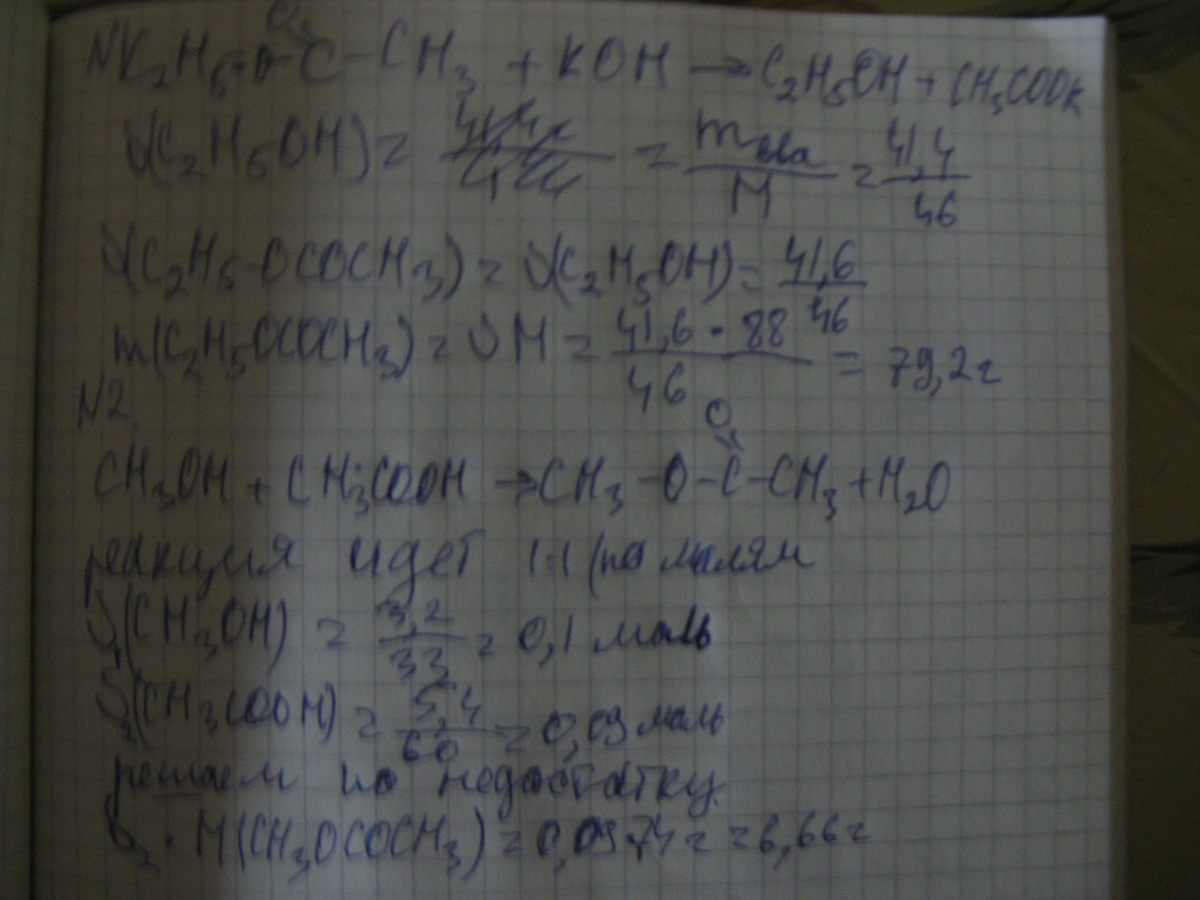 N1 C₂H₅-O-C-CH₃ + KOH → C₂H₅OH + CH₃COOK
O
ν(C₂H₅OH) = = m / M = 41,4 / 46
ν(C₂H₅-OCOCH₃) = ν(C₂H₅OH) = 41,6 / 46
m(C₂H₅OCOCH₃) = νM = 41,6 · 88 / 46 = 79,2 г
N2.
O
CH₃OH + CH₃COOH → CH₃-O-C-CH₃ + H₂O
реакция идет 1:1 (по молям
ν₁(CH₃OH) = 3,2 / 33 = 0,1 моль
ν₂(CH₃COOH) = 5,4 / 60 = 0,09 моль
решаем по недостатку.
ν₂ · M(CH₃OCOCH₃) = 0,09 74 = = 6,66 г